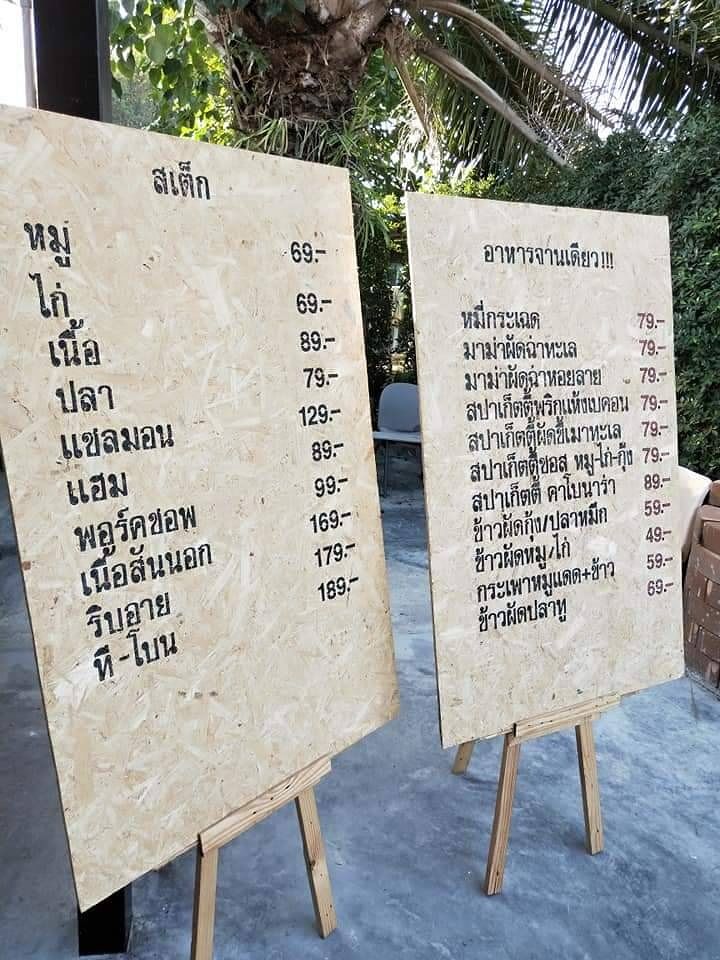 สเต็ก
หมู 69.-
ไก่ 69.-
เนื้อ 89.-
ปลา 79.-
แซลมอน 129.-
แฮม 89.-
พอร์คชอพ 99.-
เนื้อสันนอก 169.-
ริบอาย 179.-
ที-โบน 189.-
อาหารจานเดียว!!!
หมี่กระเฉด 79.-
มาม่าผัดฉ่าทะเล 79.-
มาม่าผัดฉ่าหอยลาย 79.-
สปาเก็ตตี้พริกแห้งเบคอน 79.-
สปาเก็ตตี้ผัดขี้เมาทะเล 79.-
สปาเก็ตตี้ซอส หมู-ไก่-กุ้ง 79.-
สปาเก็ตตี้ คาโบนาร่า 89.-
ข้าวผัดกุ้ง/ปลาหมึก 59.-
ข้าวผัดหมู/ไก่ 49.-
กระเพาหมูแดด+ข้าว 59.-
ข้าวผัดปลาทู 69.-